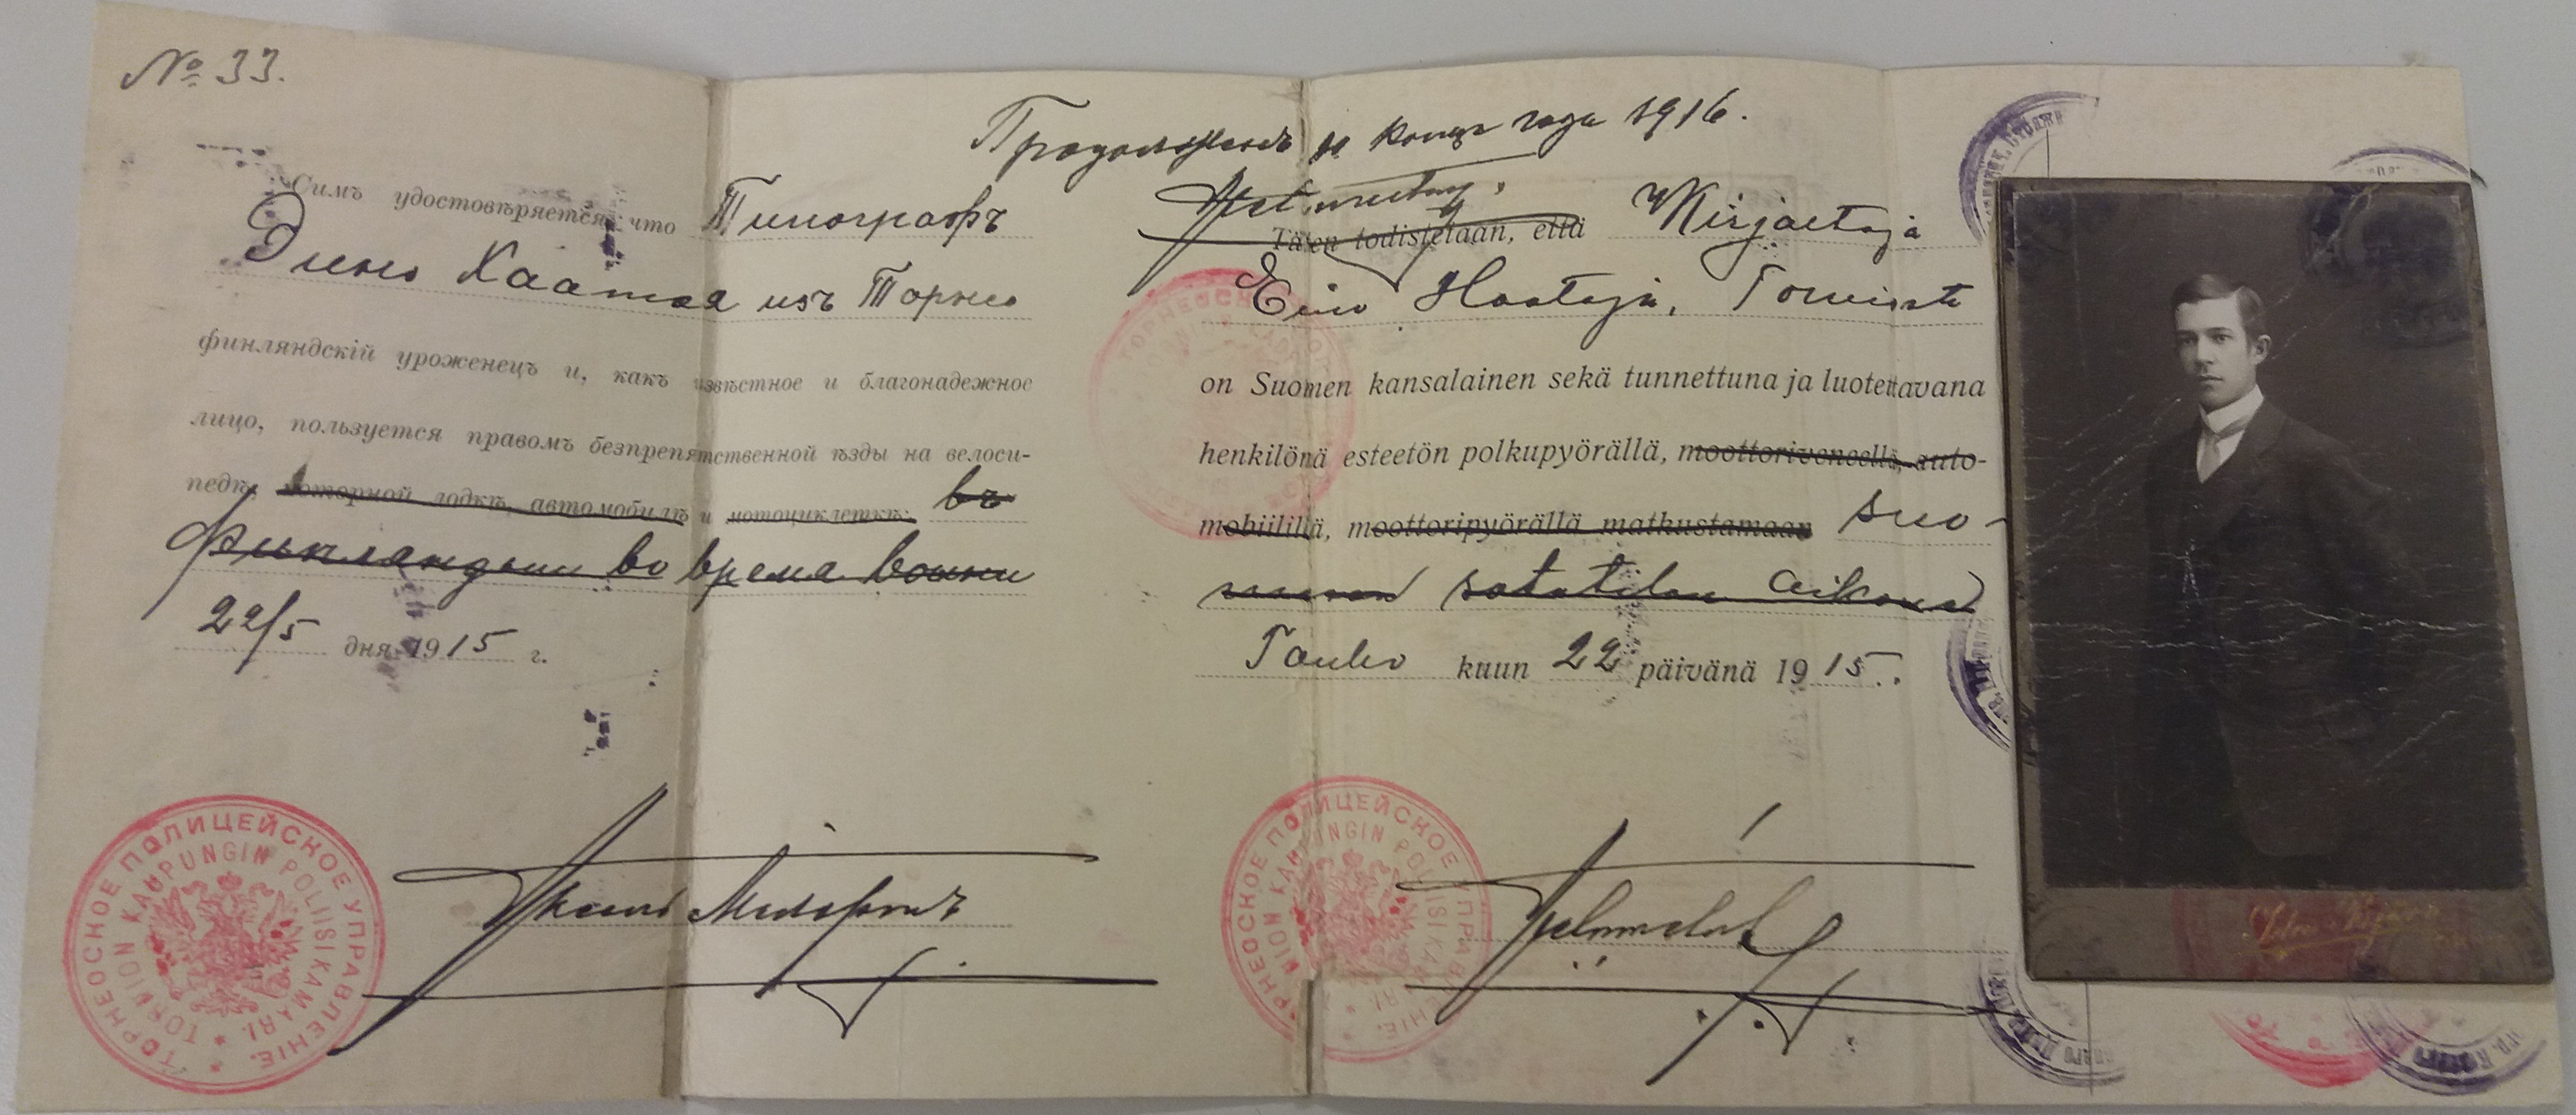 № 33.
Симъ удостовѣряется, что Типографъ
Эино Хаатая изъ Торнео
финляндскій уроженецъ и, какъ извѣстное и благонадежное
лицо, пользуется правомъ безпрепятственной ѣзды на велоси-
педѣ, моторной лодкѣ, автомобилѣ и мотоциклеткѣ: въ
Финляндіи во время войны
22/5 дня 1915 г.
ТОРНЕОСКОЕ ПОЛИЦЕЙСКОЕ УПРАВЛЕНІЕ.
TORNION KAUPUNGIN POLIISIKAMARI.
Продолженъ конца года 1916.
Täten todistetaan, että Kirjaltaja
Eino Haataja, Torniosta
on Suomen kansalainen sekä tunnettuna ja luotettavana
henkilönä esteetön polkupyörällä, moottoriveneellä, auto-
mobiilillä, moottoripyörällä matkustamaan Suo-
messa sotatilan aikana
Touko kuun 22 päivänä 1915.
ТОРНЕОСКОЕ ПОЛИЦЕЙСКОЕ УПРАВЛЕНІЕ.
TORNION KAUPUNGIN POLIISIKAMARI.